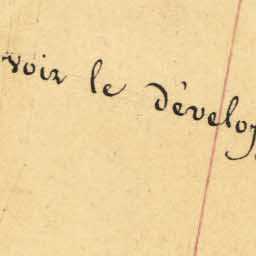 voir le dévelop